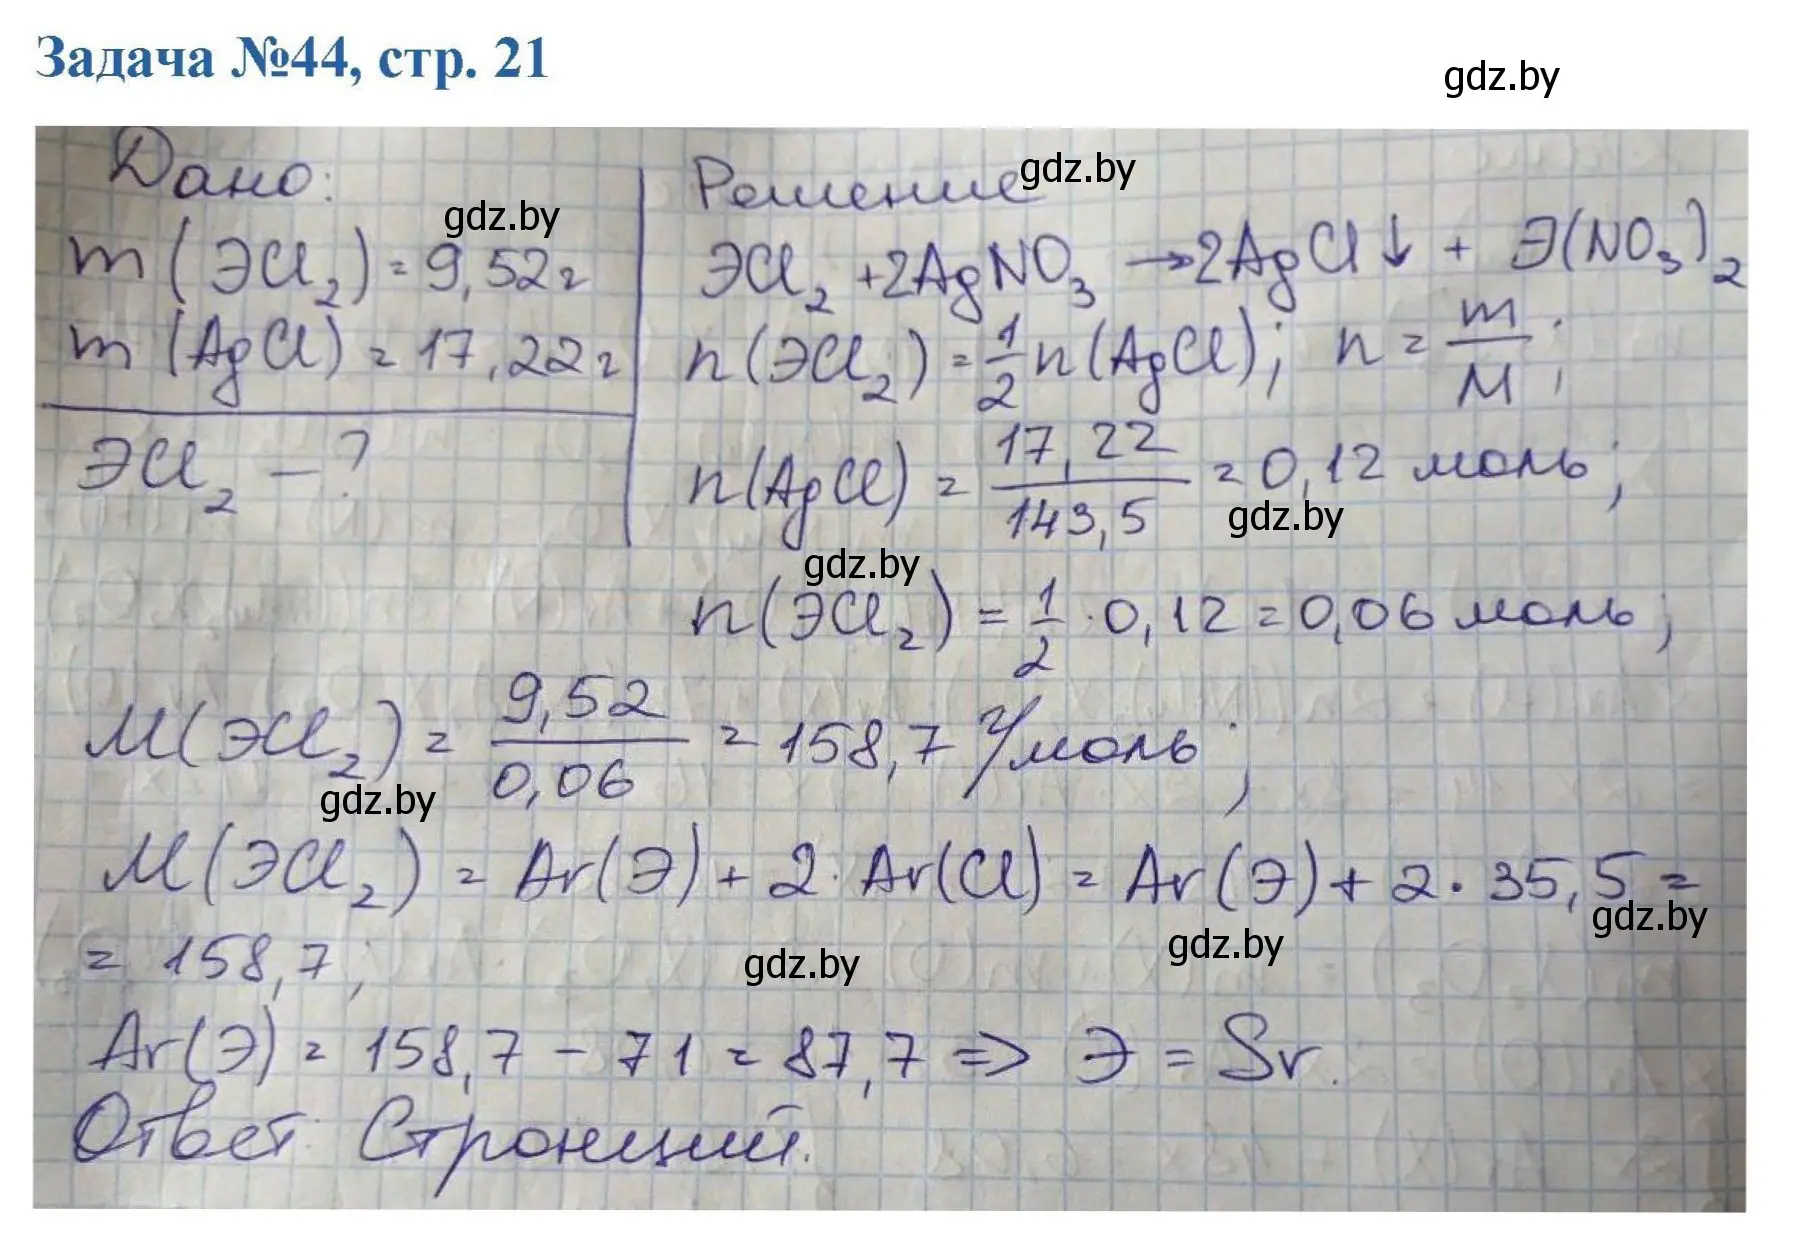 Задача №44, стр. 21
gdz.by
Дано:
gdz.by
m (ЭCl₂) = 9,52 г
m (AgCl) = 17,22 г
ЭCl₂ – ?
Решение
gdz.by
ЭCl₂ + 2AgNO₃ → 2AgCl↓ + Э(NO₃)₂
n(ЭCl₂) = 1/2 n(AgCl); n = m/M;
n(AgCl) = 17,22/143,5 = 0,12 моль;
gdz.by
gdz.by
n(ЭCl₂) = 1/2 · 0,12 = 0,06 моль;
M(ЭCl₂) = 9,52/0,06 = 158,7 г/моль;
gdz.by
M(ЭCl₂) = Ar(Э) + 2 · Ar(Cl) = Ar(Э) + 2 · 35,5 =
gdz.by
= 158,7;
gdz.by
gdz.by
Ar(Э) = 158,7 – 71 = 87,7 => Э = Sr.
Ответ: Стронций.